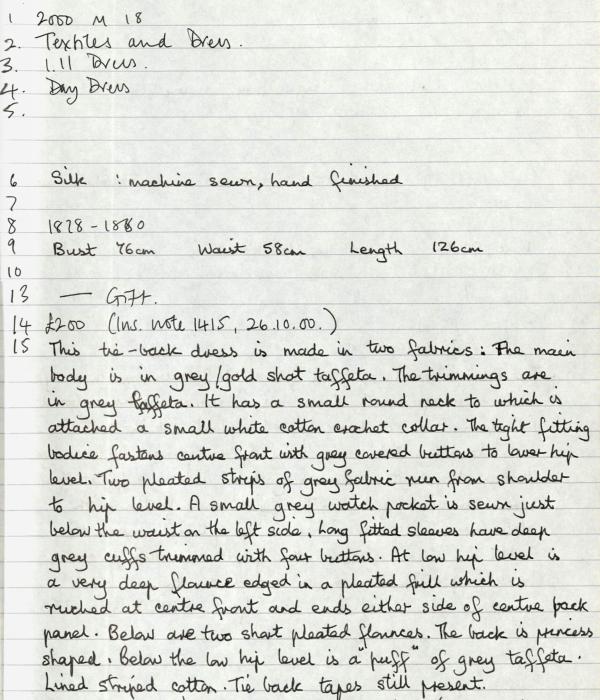 1 2000 M 18
2. Textiles and Dress.
3. 1.11 Dress.
4. Day Dress
5.
6 Silk : machine sewn, hand finished
7
8 1878 - 1880
9 Bust 76cm Waist 58cm Length 126cm
10
13 — Gift.
14 £200 (Ins. note 1415, 26.10.00.)
15 This tie-back dress is made in two fabrics: The main
body is in grey/gold shot taffeta. The trimmings are
in grey taffeta. It has a small round neck to which is
attached a small white cotton crochet collar. The tight fitting
bodice fastens centre front with grey covered buttons to lower hip
level. Two pleated strips of grey fabric run from shoulder
to hip level. A small grey watch pocket is sewn just
below the waist on the left side. Long fitted sleeves have deep
grey cuffs trimmed with four buttons. At low hip level is
a very deep flounce edged in a pleated frill which is
ruched at centre front and ends either side of centre back
panel. Below are two short pleated flounces. The back is princess
shaped. Below the low hip level is a "puff" of grey taffeta.
Lined striped cotton. Tie back tapes still present.